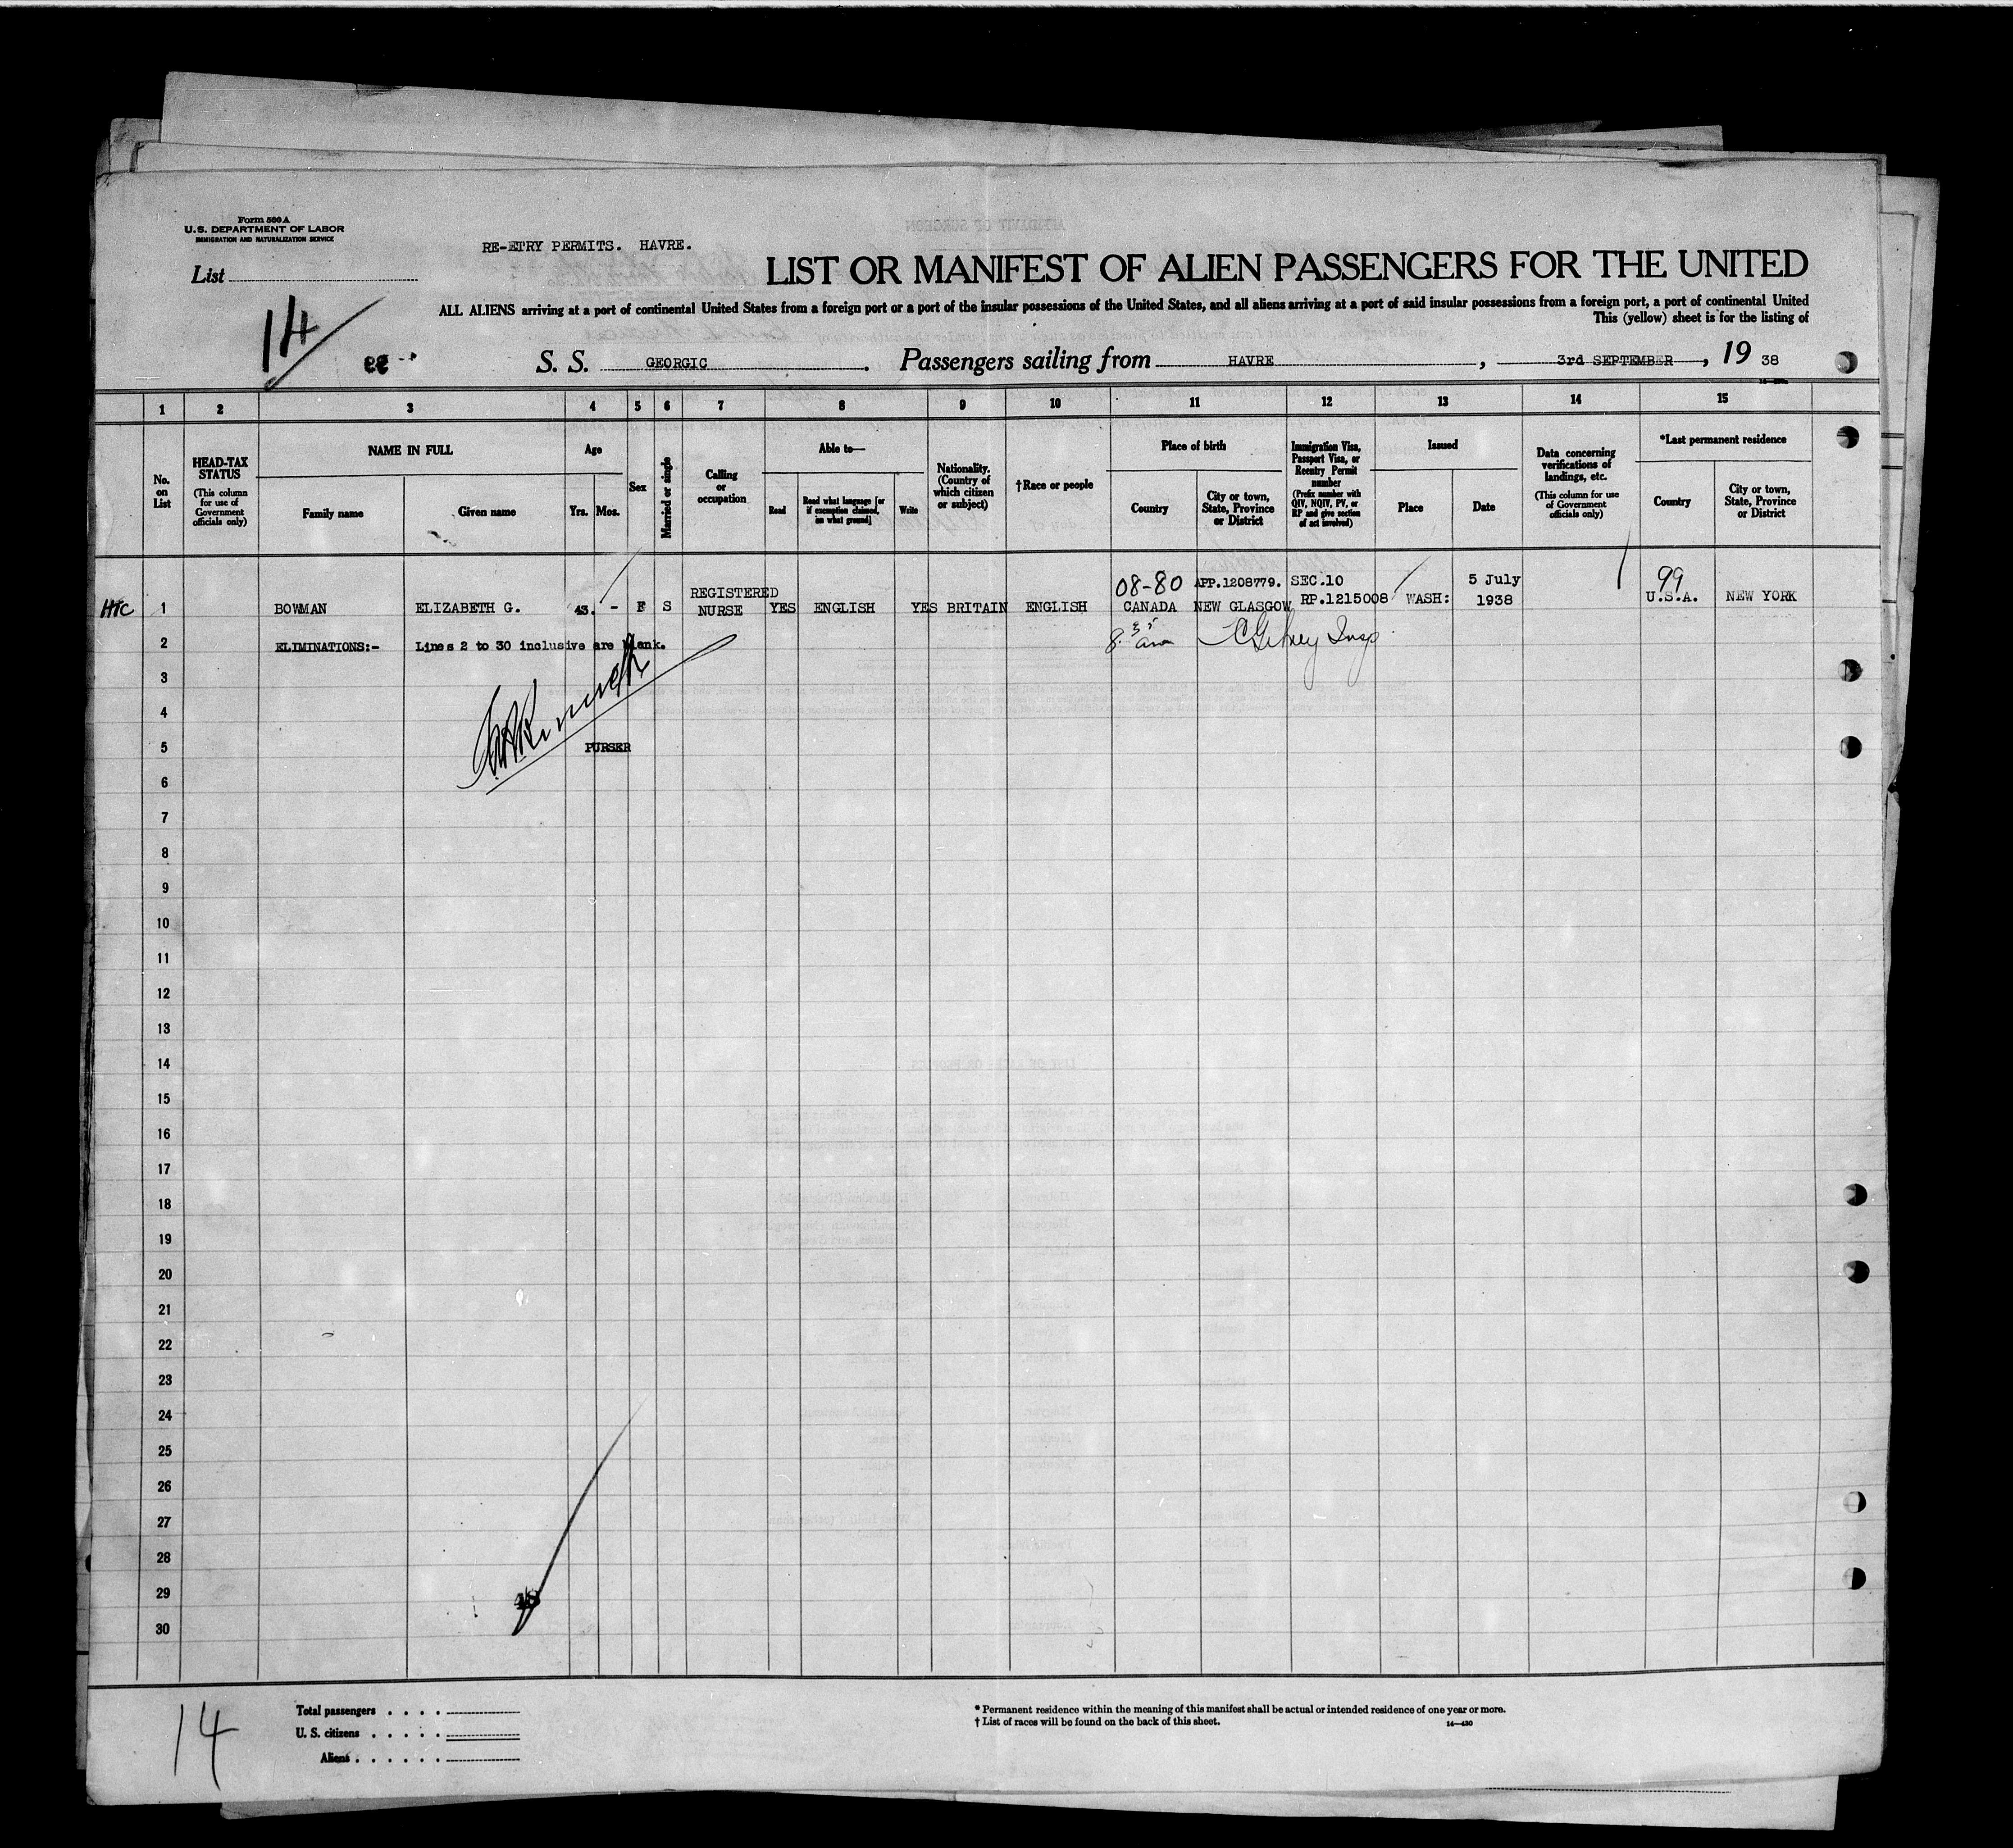 Form 500 A
U. S. DEPARTMENT OF LABOR
IMMIGRATION AND NATURALIZATION SERVICE
RE-ETRY PERMITS. HAVRE.
List
14
LIST OR MANIFEST OF ALIEN PASSENGERS FOR THE UNITED
ALL ALIENS arriving at a port of continental United States from a foreign port or a port of the insular possessions of the United States, and all aliens arriving at a port of said insular possessions from a foreign port, a port of continental United
This (yellow) sheet is for the listing of
S. S. GEORGIC. Passengers sailing from HAVRE, 3rd SEPTEMBER, 19 38
1 2 3 4 5 6 7 8 9 10 11 12 13 14 15
No. on List
HEAD-TAX STATUS
(This column for use of Government officials only)
NAME IN FULL
Family name
Given name
Age
Yrs. Mos.
Sex
Married or single
Calling or occupation
Able to—
Read
Read what language [or if exemption claimed, on what ground]
Write
Nationality. (Country of which citizen or subject)
† Race or people
Place of birth
Country
City or town, State, Province or District
Immigration Visa, Passport Visa, or Reentry Permit number
(Prefix number with QIV, NQIV, PV, or RP and give section of act involved)
Issued
Place
Date
Data concerning verifications of landings, etc.
(This column for use of Government officials only)
*Last permanent residence
Country
City or town, State, Province or District
08-80 APP.1208779. SEC.10 5 July 99
1 BOWMAN ELIZABETH G. 43. - F S REGISTERED NURSE YES ENGLISH YES BRITAIN ENGLISH CANADA NEW GLASGOW RP.1215008 WASH: 1938 U.S.A. NEW YORK
2 ELIMINATIONS:- Lines 2 to 30 inclusive are blank. 8 35 am Insp.
3
4
5 PURSER
6
7
8
9
10
11
12
13
14
15
16
17
18
19
20
21
22
23
24
25
26
27
28
29
30
14
Total passengers . . . .
U. S. citizens . . . . .
Aliens . . . . . .
* Permanent residence within the meaning of this manifest shall be actual or intended residence of one year or more.
† List of races will be found on the back of this sheet.
14—430